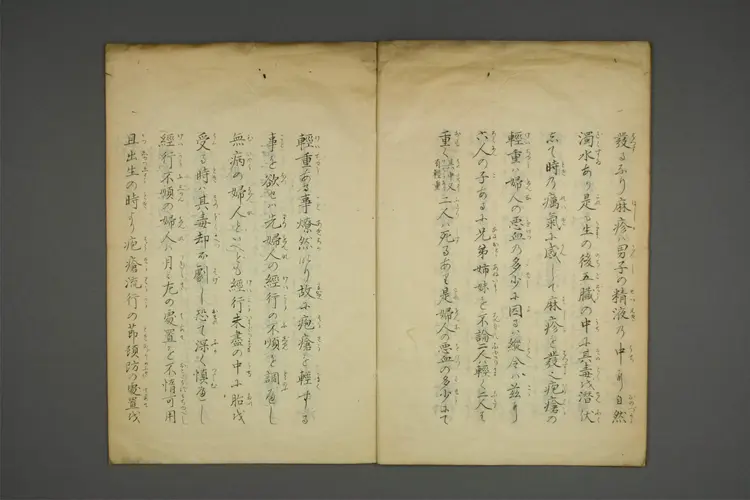 發るなり麻疹ハ男子の精液の中より自然
濁水あり是も生の後五臓の中に其毒を潜伏
して時の癘氣に感して麻疹を發す疱瘡の
輕重ハ婦人の悪血の多少に因る縦令ハ茲に
六人の子あるに兄弟姉妹を不論二人ハ輕く二人ハ
重く其中又有輕重二人ハ死るあり是婦人の悪血の多少にて
輕重ある事燎然たり故に疱瘡を輕する
事を欲せハ先婦人の經行の不順を調へし
無病の婦人といへとも經行未盡の中に胎を
受る時ハ其毒却而劇し恐て深く慎へし
經行不順の婦人ハ月々左の處置を不惰可用
且出生の時より疱瘡流行の節預防の處置を